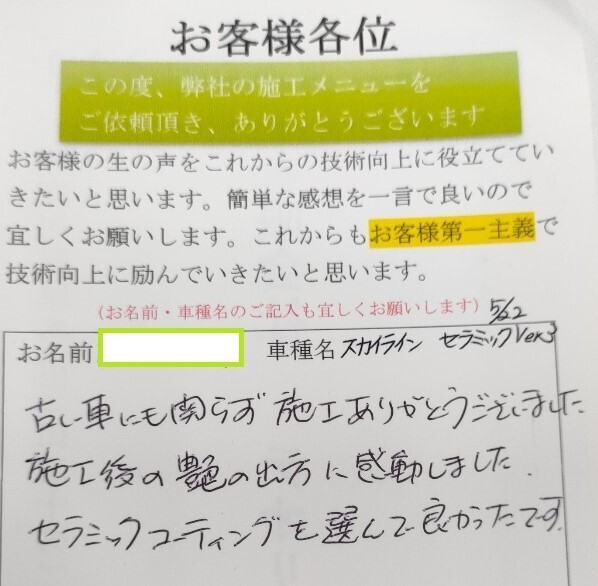 お客様各位
この度、弊社の施工メニューを
ご依頼頂き、ありがとうございます
お客様の生の声をこれからの技術向上に役立ててい
きたいと思います。簡単な感想を一言で良いので
宜しくお願いします。これからもお客様第一主義で
技術向上に励んでいきたいと思います。
(お名前・車種名のご記入も宜しくお願いします)
5/22
お名前 車種名 スカイライン セラミックVer3
古い車にも関らず施工ありがとうございました
施工後の艶の出方に感動しました.
セラミックコーティングを選んで良かったです.